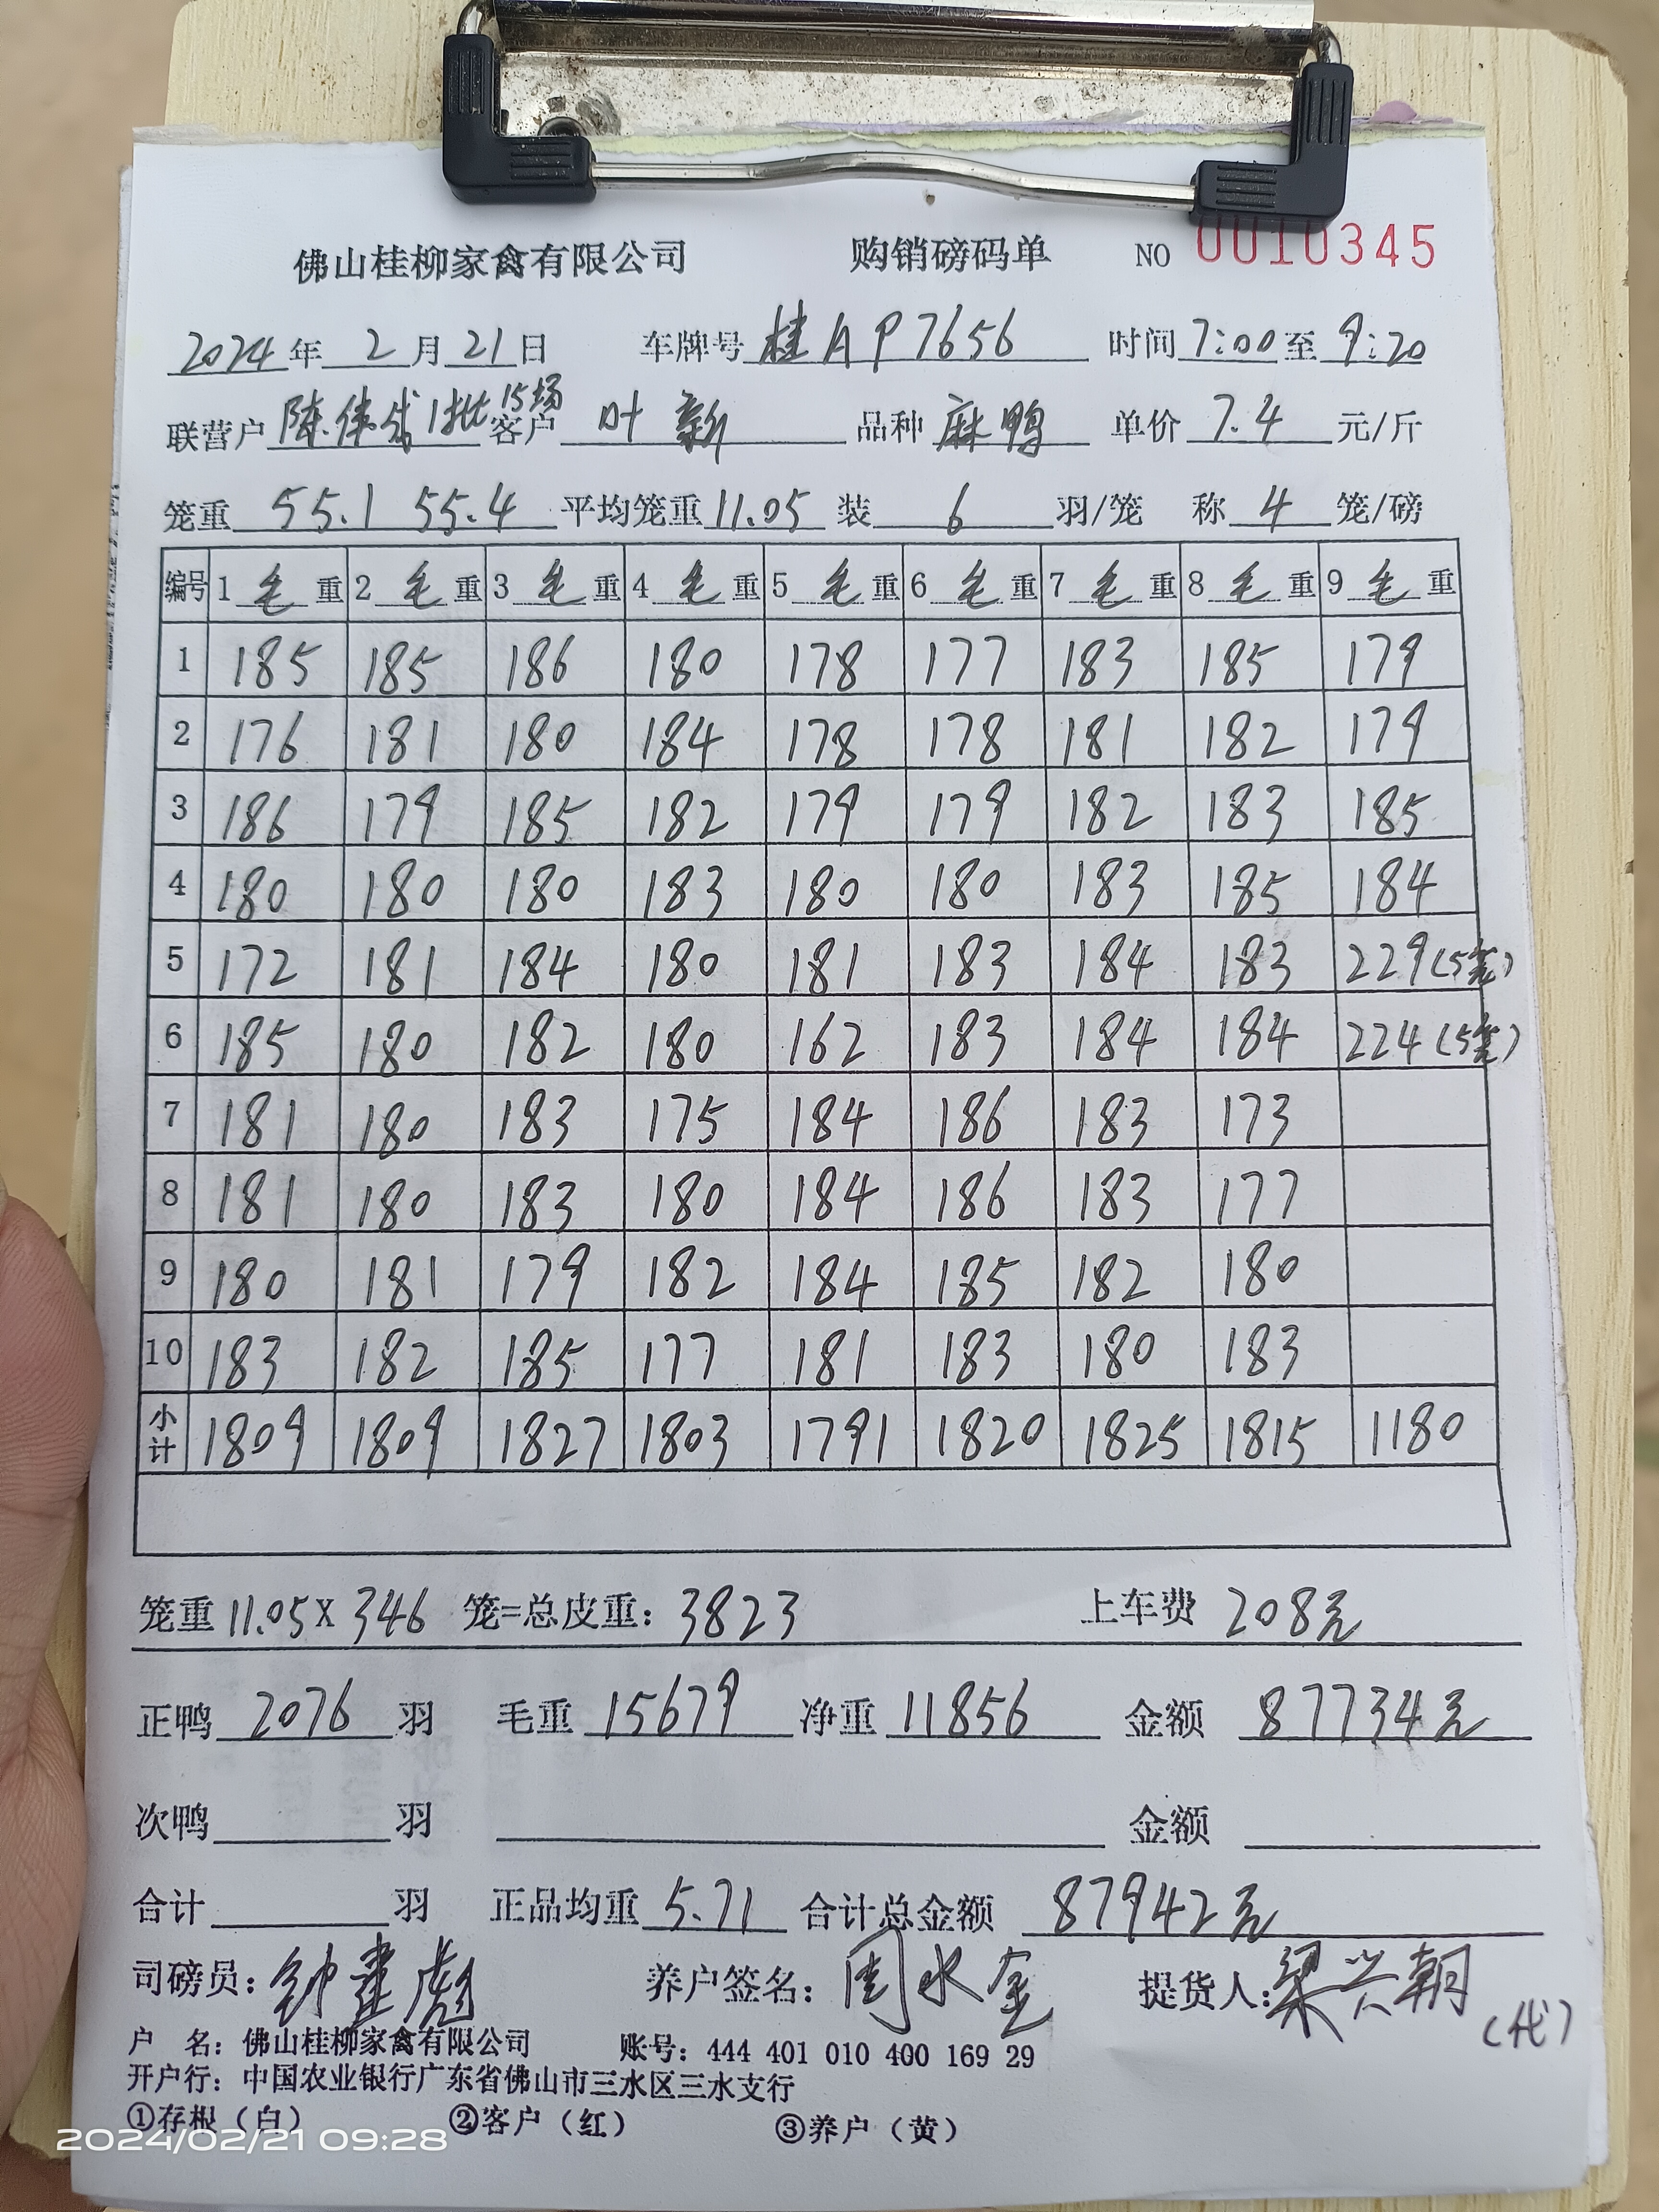 佛山桂柳家禽有限公司 购销磅码单 NO 0010345
2024年 2月21日 车牌号 桂AP7656 时间 7:00至 9:20
联营户 陈伟成1批15场 客户 叶新 品种 麻鸭 单价 7.4 元/斤
笼重 55.1 55.4 平均笼重 11.05 装 6 羽/笼 称 4 笼/磅
编号 1毛重 2毛重 3毛重 4毛重 5毛重 6毛重 7毛重 8毛重 9毛重
1 185 185 186 180 178 177 183 185 179
2 176 181 180 184 178 178 181 182 179
3 186 179 185 182 179 179 182 183 185
4 180 180 180 183 180 180 183 185 184
5 172 181 184 180 181 183 184 183 229(5笼)
6 185 180 182 180 162 183 184 184 224(5笼)
7 181 180 183 175 184 186 183 173
8 181 180 183 180 184 186 183 177
9 180 181 179 182 184 185 182 180
10 183 182 185 177 181 183 180 183
小计 1809 1809 1827 1803 1791 1820 1825 1815 1180
笼重 11.05 X 346 笼=总皮重: 3823 上车费 208元
正鸭 2076 羽 毛重 15679 净重 11856 金额 87734元
次鸭 羽 金额
合计 羽 正品均重 5.71 合计总金额 87942元
司磅员: 钟建彪 养户签名: 周水金 提货人: 梁兴朝
(代)
户 名: 佛山桂柳家禽有限公司 账号: 444 401 010 400 169 29
开户行: 中国农业银行广东省佛山市三水区三水支行
①存根(白) ②客户(红) ③养户(黄)
2024/02/21 09:28